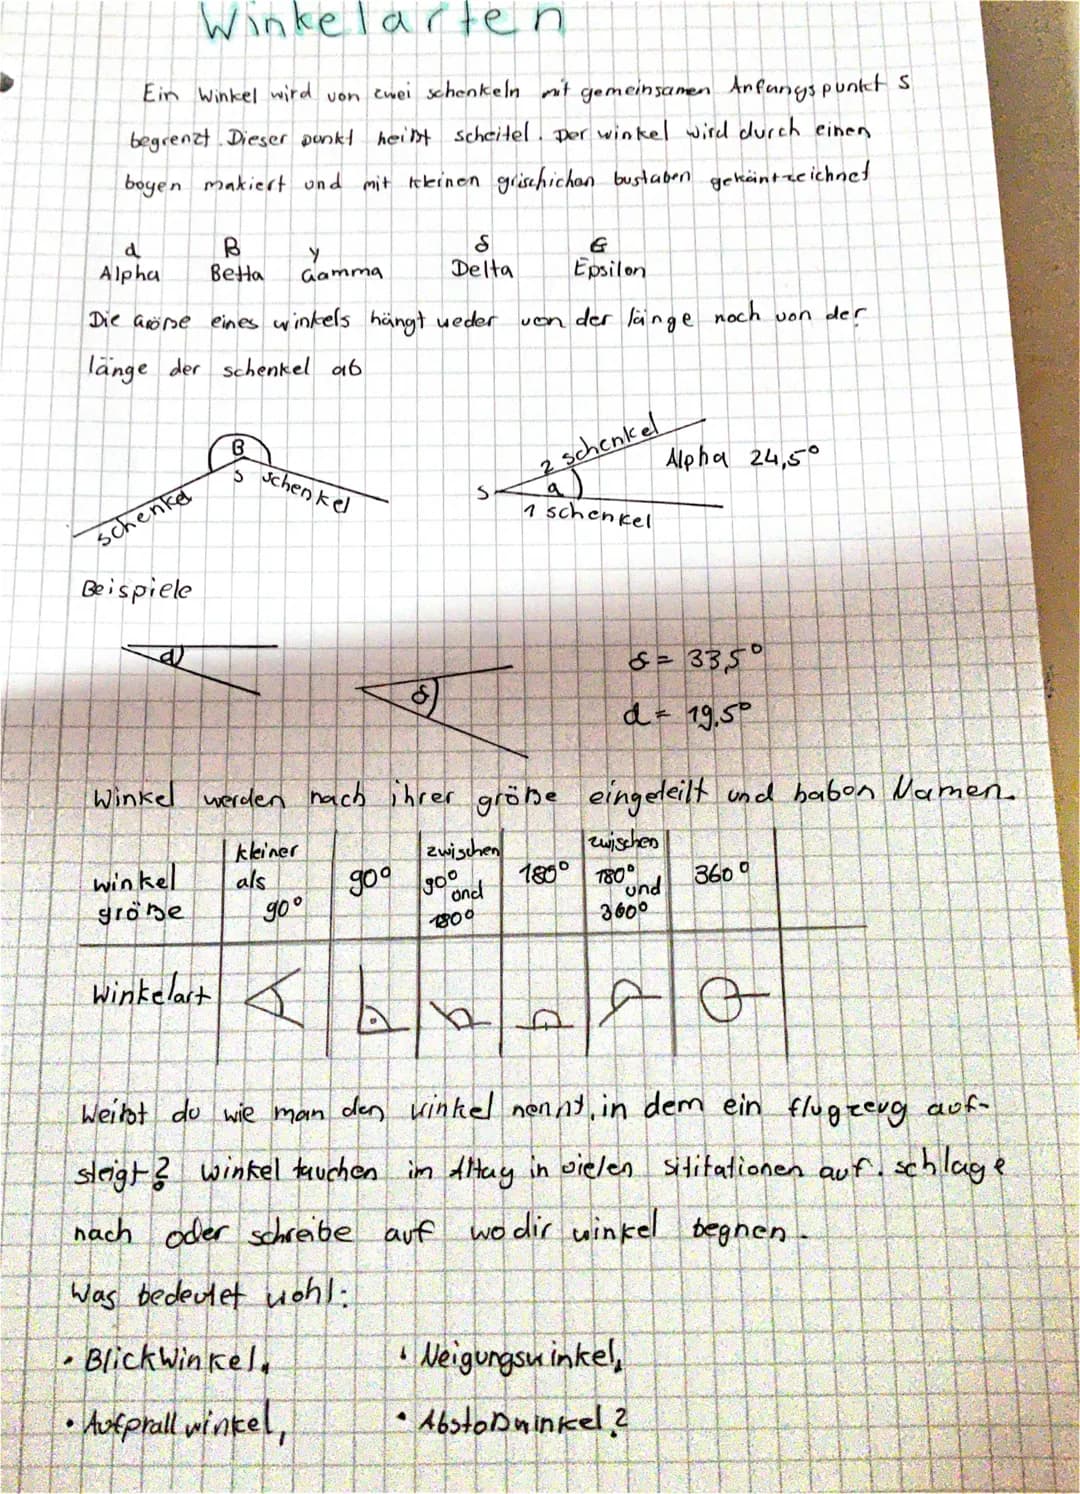 Winkelarten
Ein Winkel wird von zwei schenkeln mit gemeinsamen Anfangspunkt S
begrenzt. Dieser punkt heißt scheitel. Der winkel wird durch einen
bogen makiert und mit kleinen grischichan bustaben gekäntzeichnet
α B γ δ ε
Alpha Betta Gamma Delta Epsilon
Die Größe eines winkels hängt weder von der länge noch von der
länge der schenkel ab
B
S
schenkel schenkel
2 schenkel
Alpha 24,5°
S a
1 schenkel
Beispiele
α
δ
δ = 33,5°
α = 19,5°
Winkel werden nach ihrer größe eingeteilt und haben Namen.
winkel größe kleiner als 90° 90° zwischen 90° und 180° 180° zwischen 180° und 360° 360°
Winkelart
Weißt du wie man den winkel nennt, in dem ein flugzeug auf-
steigt? winkel tauchen im Alltag in vielen sititationen auf. schlage
nach oder schreibe auf wo dir winkel begnen.
Was bedeutet wohl:
• Blickwinkel, • Neigungswinkel,
• Aufprallwinkel, • Abstoßwinkel?